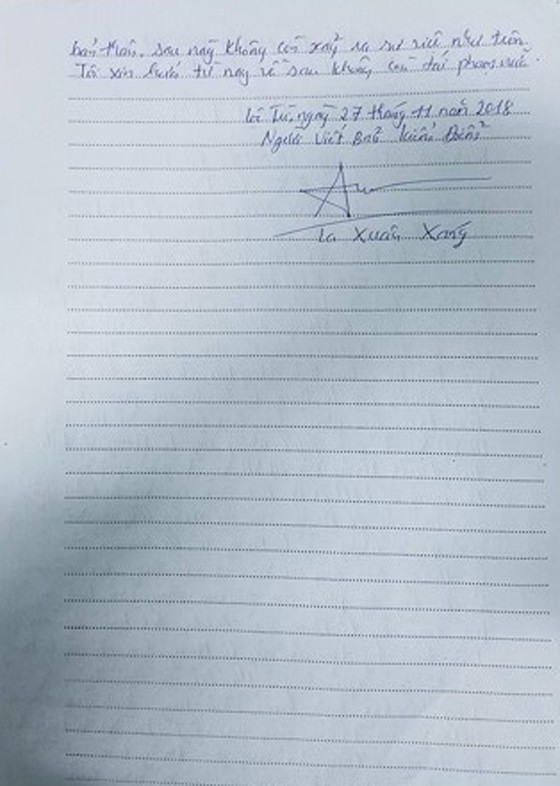 bản thân. sau này không còn xảy ra sự việc như trên.
Tôi xin hứa từ nay về sau không còn tái phạm nữa.
ngày 27 tháng 11 năm 2018
Người viết Bản kiểm Điểm
Xuân